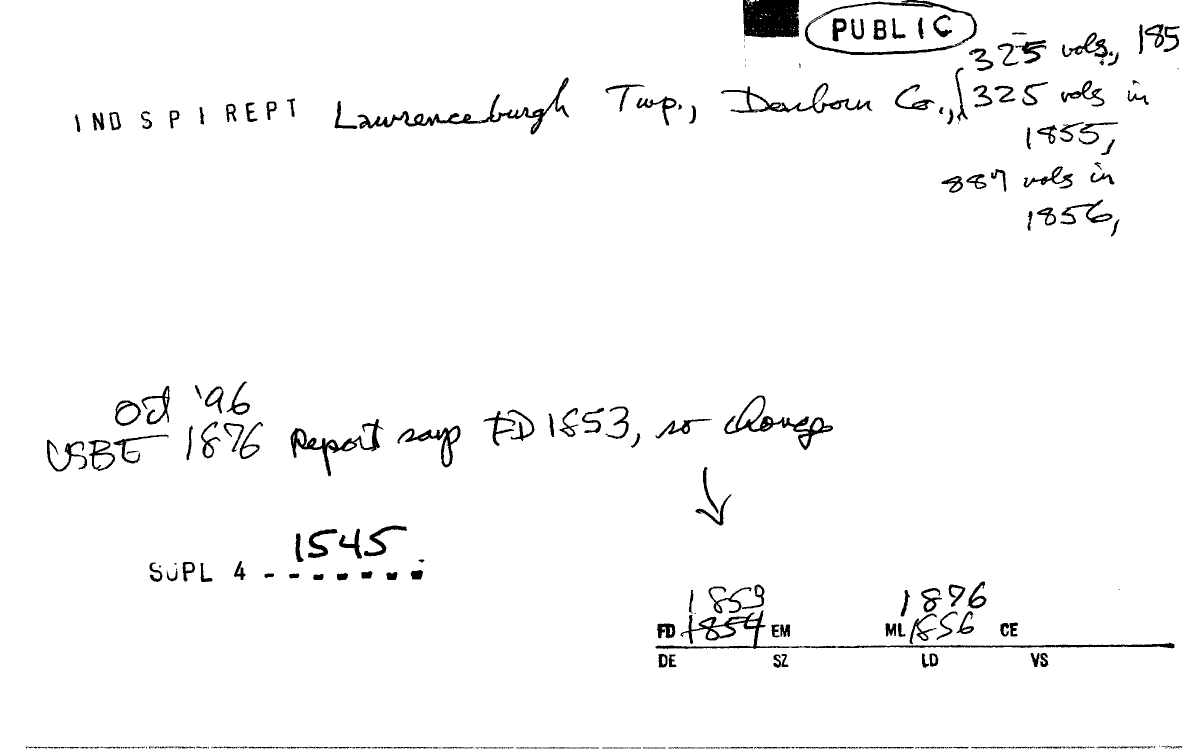 PUBLIC
325 vols., 185
IND S P I REPT Lawrenceburgh Twp., Dearborn Co., 325 vols in
1855,
887 vols in
1856,
Oct '96
USBE 1876 Report says FD 1853, so change
SUPL 4 1545
1853 1876
FD 1854 EM ML 1856 CE
DE SZ LD VS